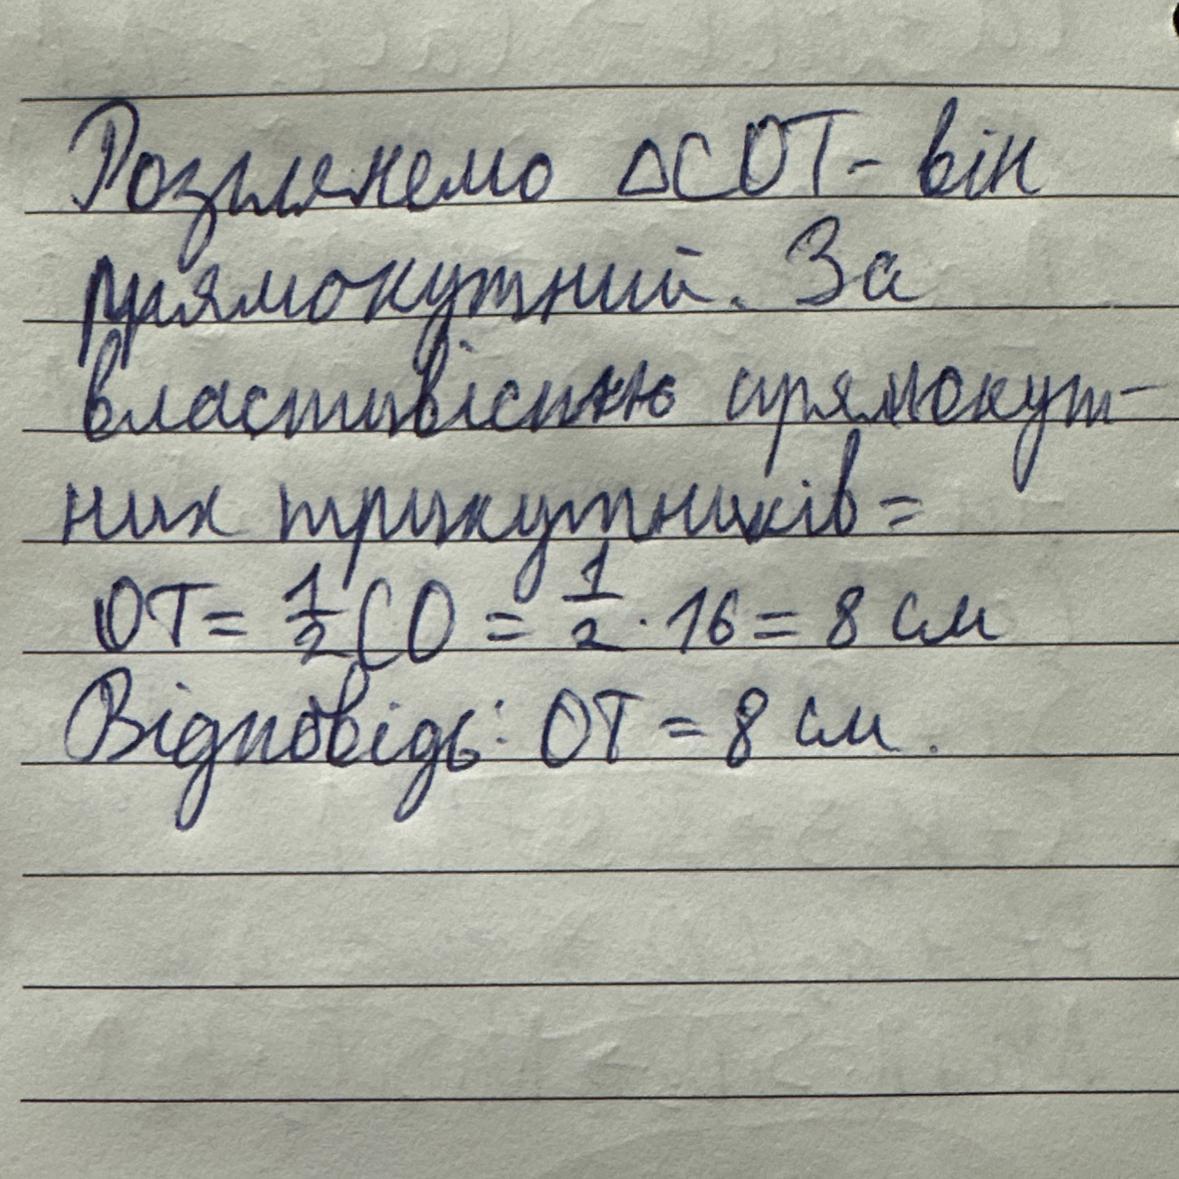 Розглянемо △COT - він
прямокутний. За
властивістю прямокут-
них трикутників =
OT = 1/2 CO = 1/2 · 16 = 8 см
Відповідь: OT = 8 см.